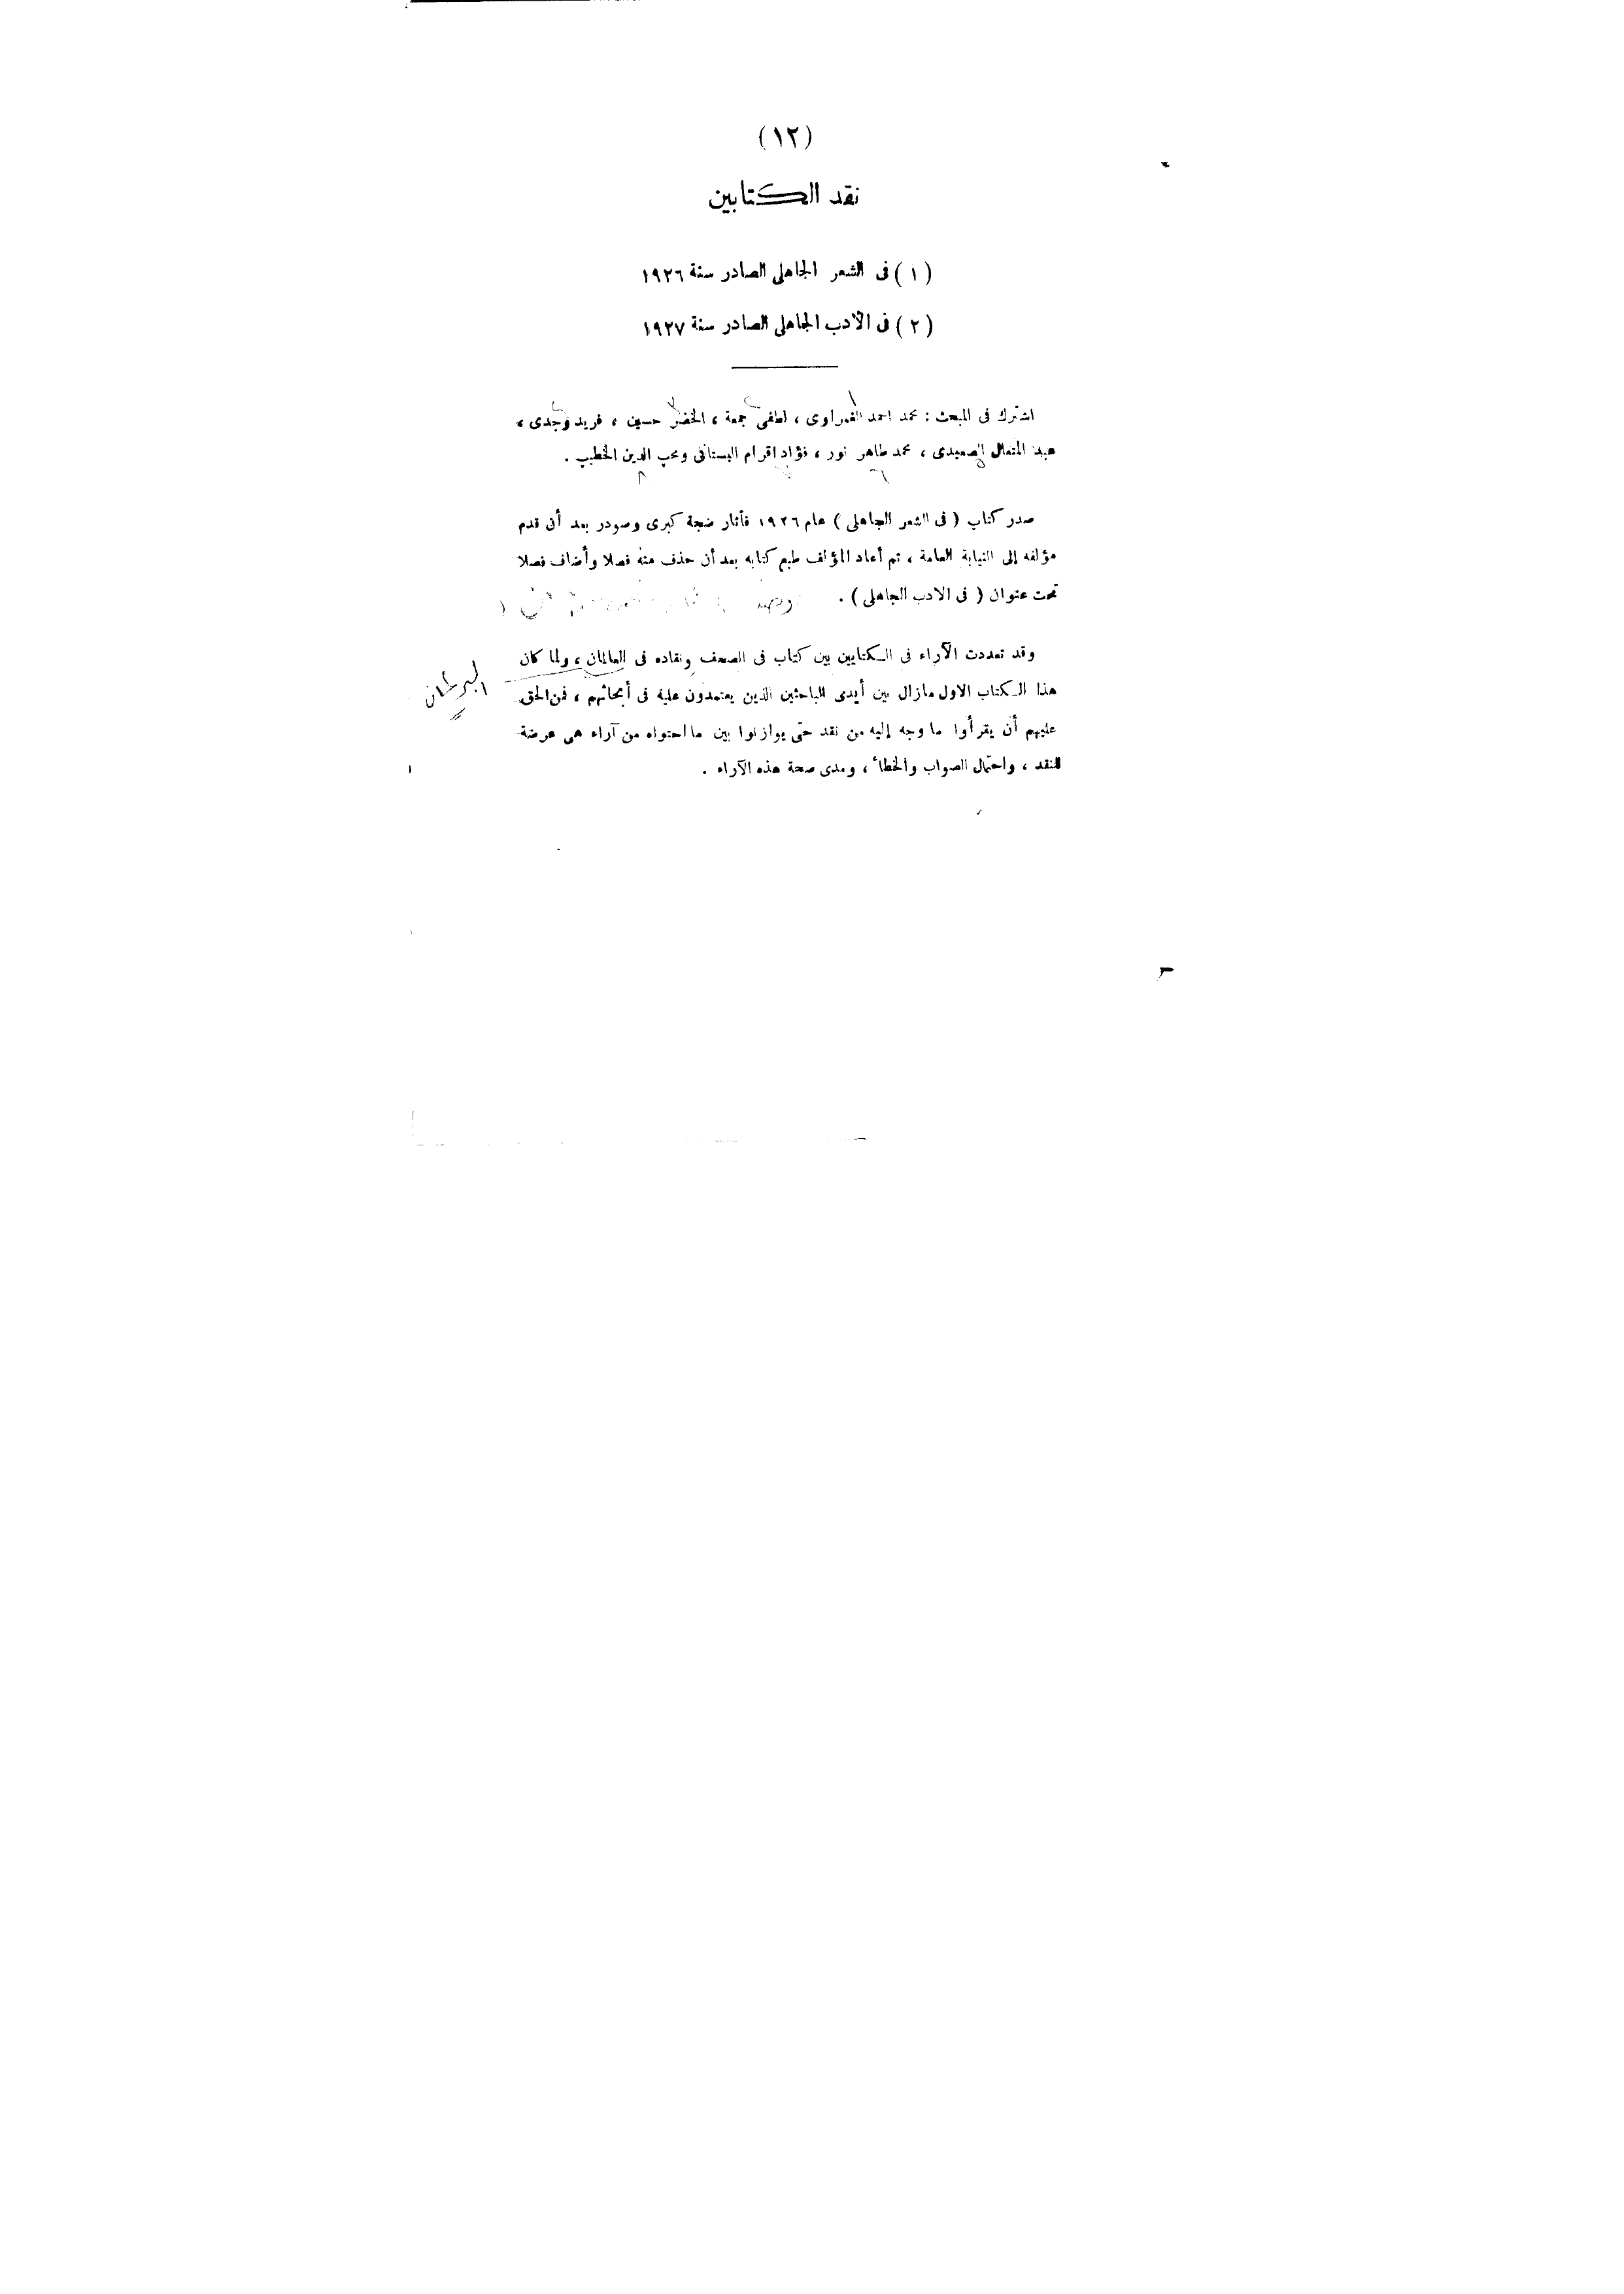 (١٢)
نقد الكتابين
(١) فى الشعر الجاهلى الصادر سنة ١٩٢٦
(٢) فى الأدب الجاهلى الصادر سنة ١٩٢٧
اشترك فى المبحث : محمد احمد الغمراوى ، لطفى جمعة ، الخضر حسين ، فريد وجدى ،
عبد المتعال الصعيدى ، محمد طاهر نور ، فؤاد اقرام البستانى ومحب الدين الخطيب .
صدر كتاب ( فى الشعر الجاهلى ) عام ١٩٢٦ فأثار ضجة كبرى وصودر بعد أن قدم
مؤلفه إلى النيابة العامة ، تم أعاد المؤلف طبع كتابه بعد أن حذف منه فصلا وأضاف فصلا
تحت عنوان ( فى الادب الجاهلى ) .
وقد تعددت الآراء فى الكتابين بين كتاب فى الصحف ونقاده فى العالمان ، ولما كان
البرلمان
هذا الكتاب الاول مازال بين أيدى الباحثين الذين يعتمدون علية فى أبحاثهم ، فمن الحق
عليهم أن يقرأوا ما وجه إليه من نقد حتى يوازنوا بين ما احتواه من آراء هى عرضة
للنقد ، واحتمال الصواب والخطأ ، ومدى صحة هذه الآراء .